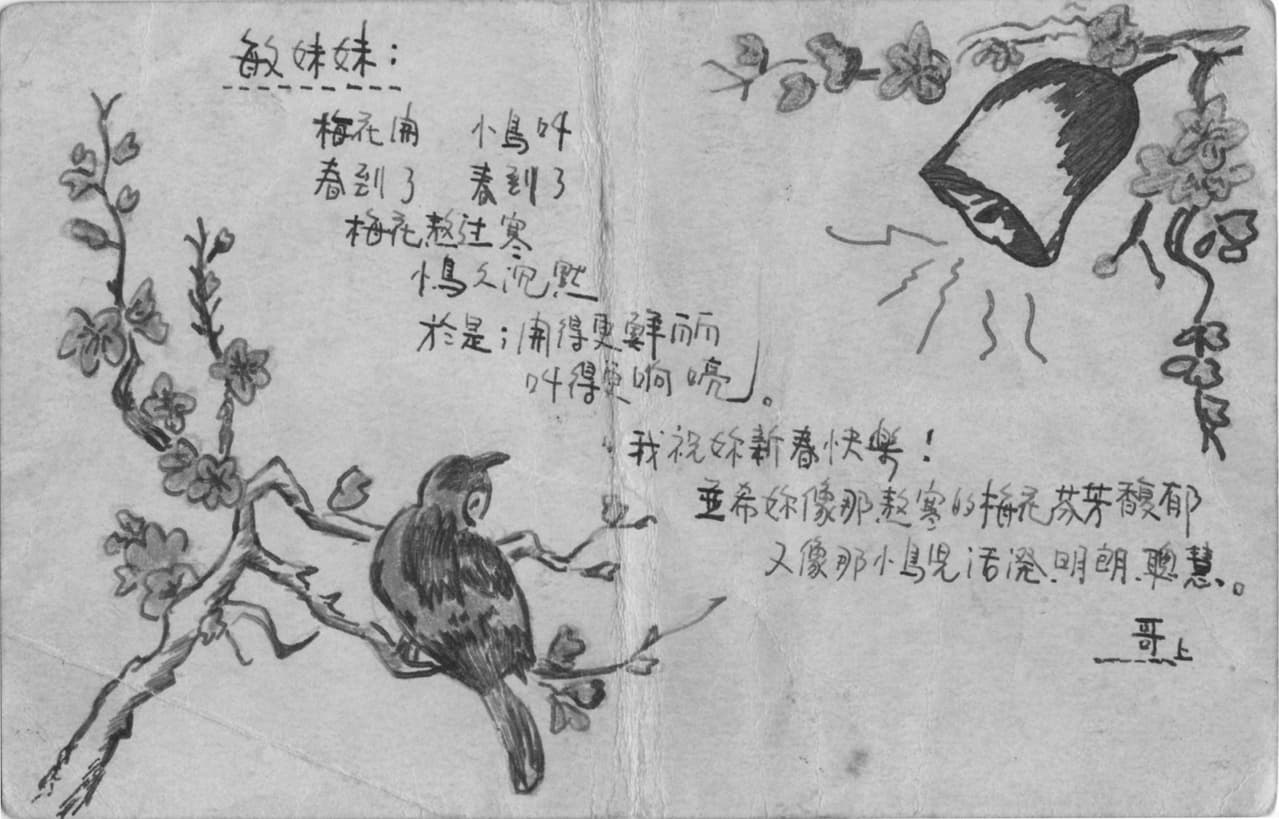 敏妹妹：
梅花開　小鳥叫
春到了　春到了
梅花熬过寒
小鳥久沉默
於是；開得更鮮丽
叫得更响亮」。
我祝妳新春快樂！
並希妳像那熬寒的梅花芬芳馥郁
又像那小鳥児活潑、明朗、聰慧。
哥上